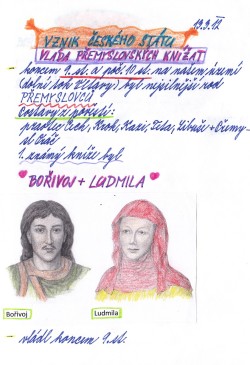 19.9.12
VZNIK ČESKÉHO STÁTU
VLÁDA PŘEMYSLOVSKÝCH KNÍŽAT
- koncem 9. st. a poč. 10. st. na našem území
(dolní tok Vltavy) byl nejsilnější rod
PŘEMYSLOVCŮ
Postavy z pověstí:
praotec Čech, Krok, Kazi, Teta, Libuše + Přemy-
sl Oráč
1. známý kníže byl
BOŘIVOJ + LUDMILA
Bořivoj
Ludmila
- vládl koncem 9. st.